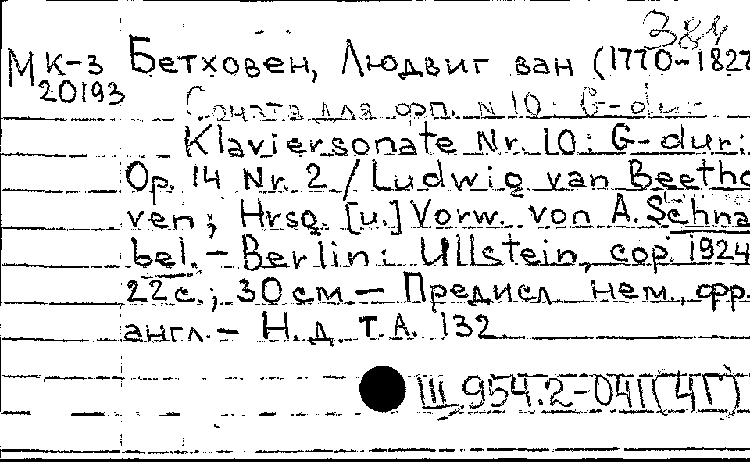 384
МК-3 Бетховен, Людвиг ван (1770-1827
20193
Соната для фп. N 10: G-dur
Klaviersonate Nr. 10: G-dur:
Op. 14 Nr. 2 / Ludwig van Beetho
ven; Hrsg. [u.] Vorw. von A. Schna
bel. - Berlin: Ullstein, cop. 1924
22 с.; 30 см. - Предисл. нем., фр.
англ. - Н. д. Т.А. 132.
III 954.2-041(4Г)